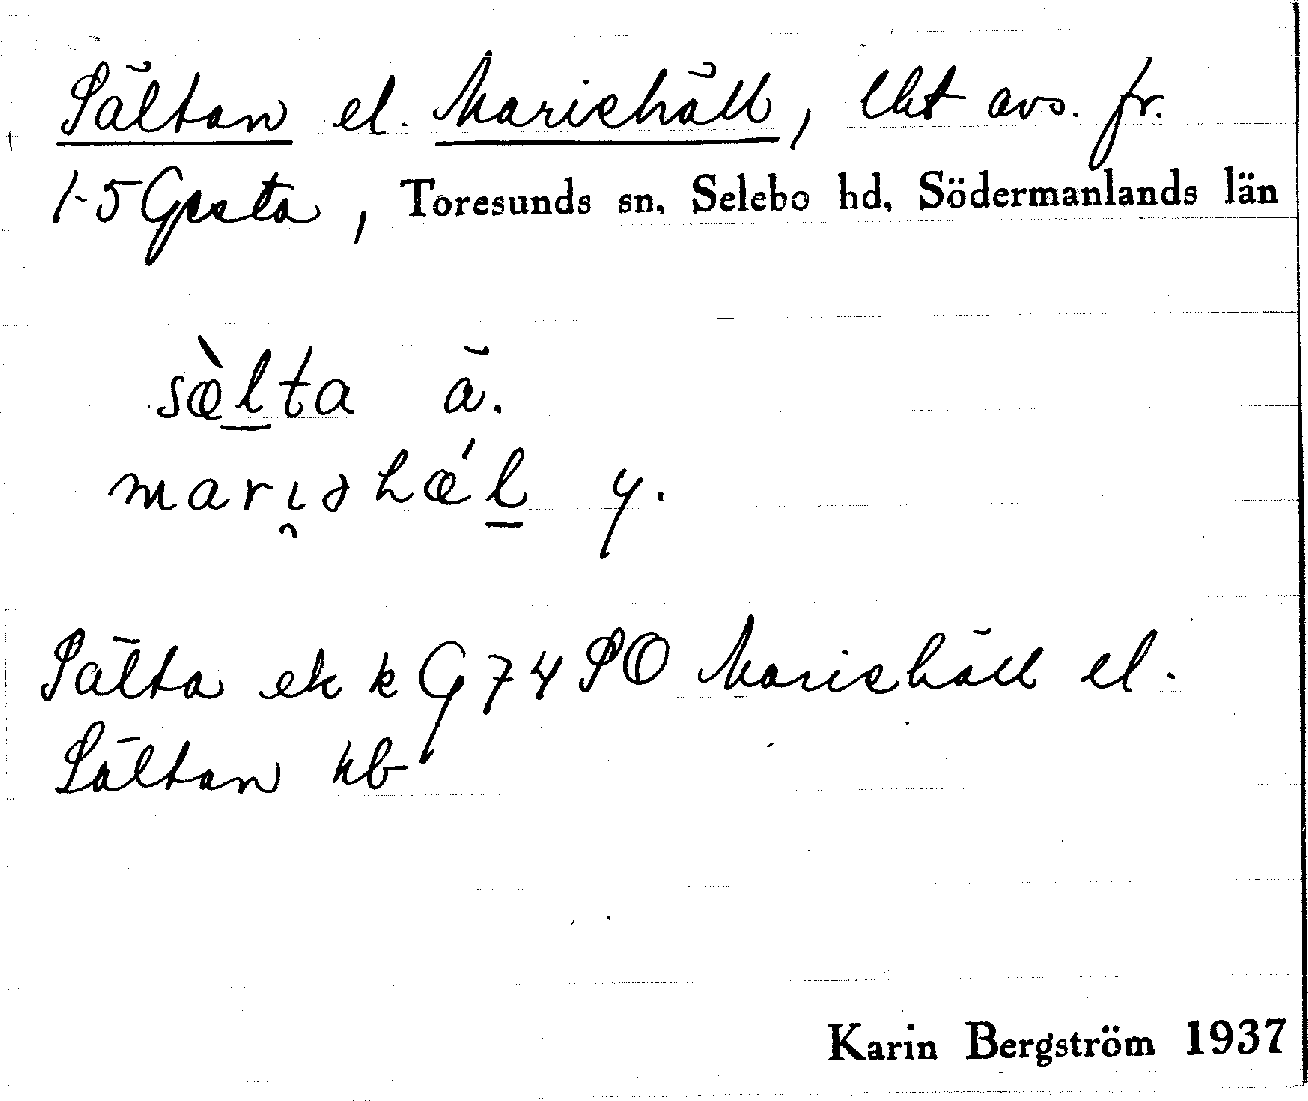 Sältan el. Mariehäll, lht avs. fr.
1-5 Gesta, Toresunds sn, Selebo hd, Södermanlands län
sæ̀lta ä.
marɩ̯əhǽl y.
Sälta ek k G74SO Mariehäll el.
Sältan kb
Karin Bergström 1937